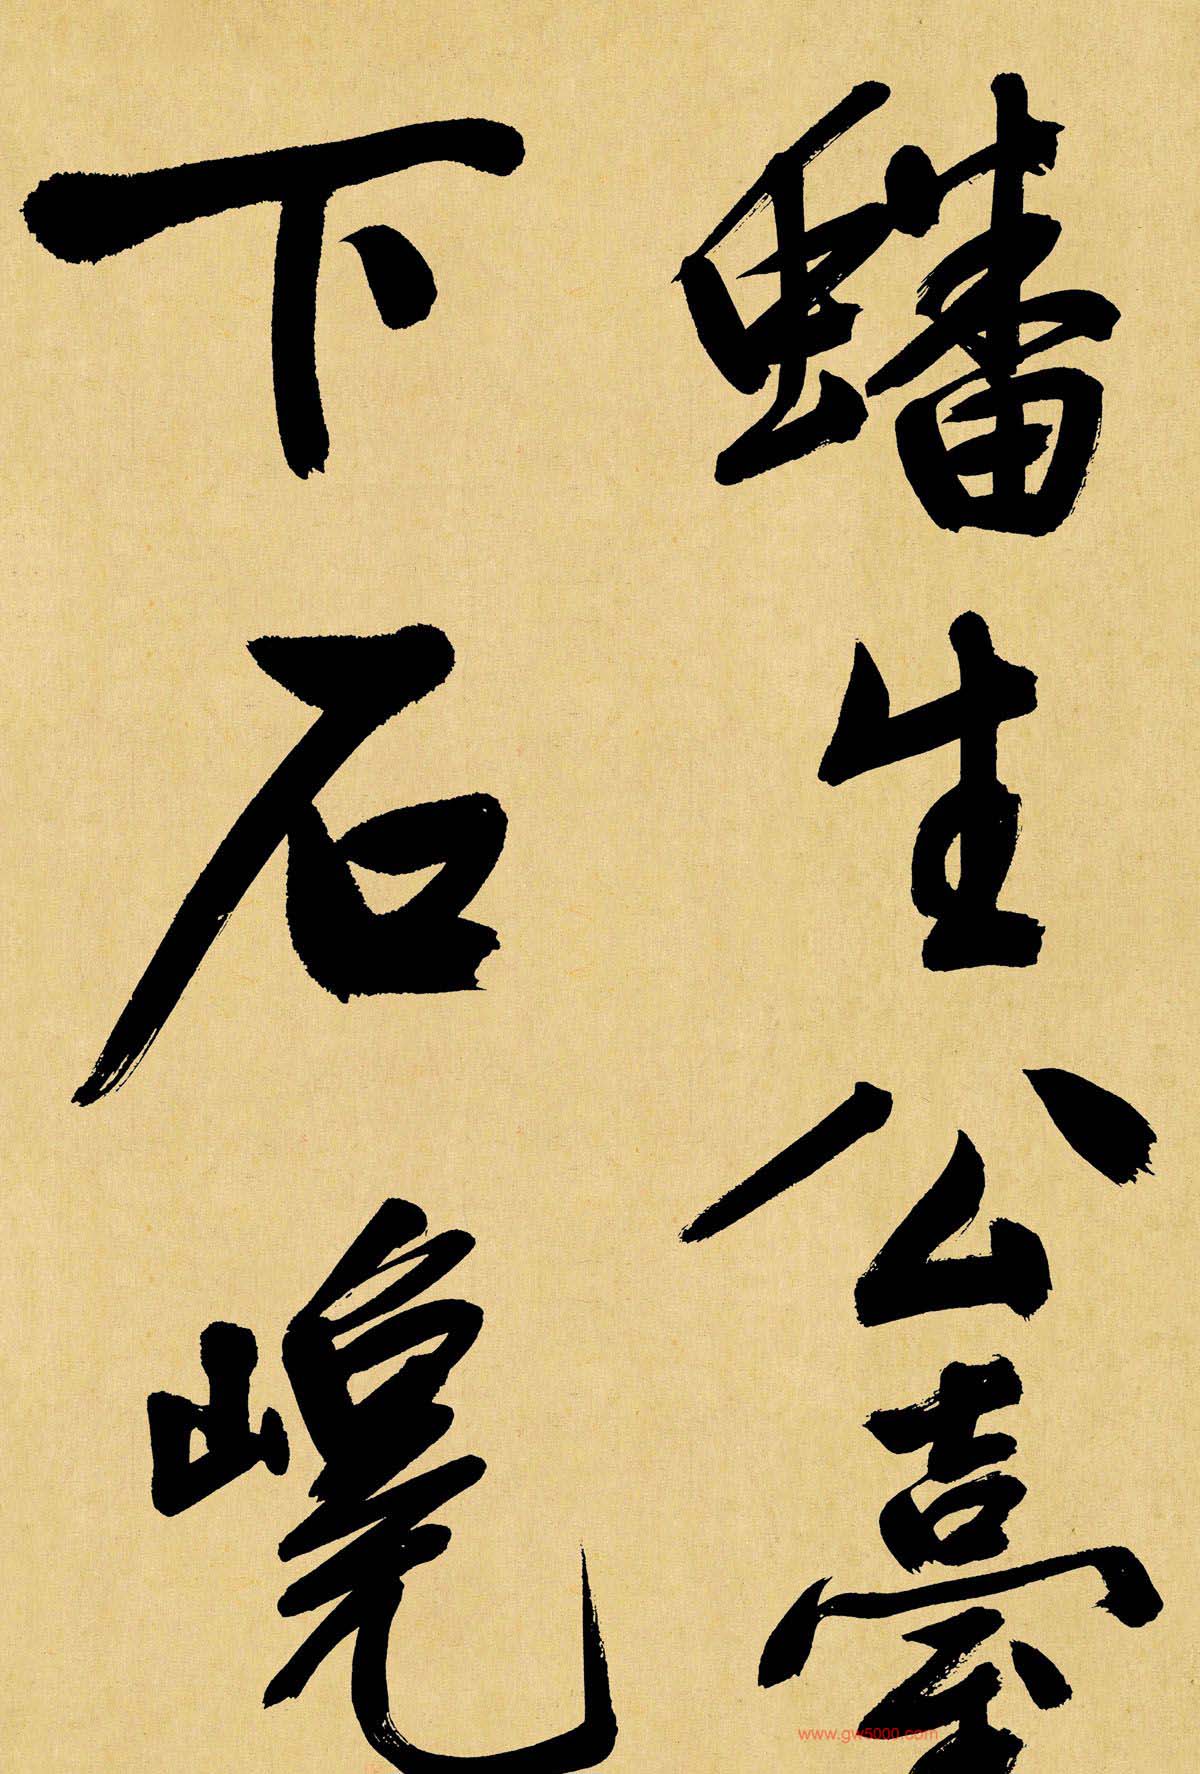 蟠生公臺
下石嵬
www.gw5000.com